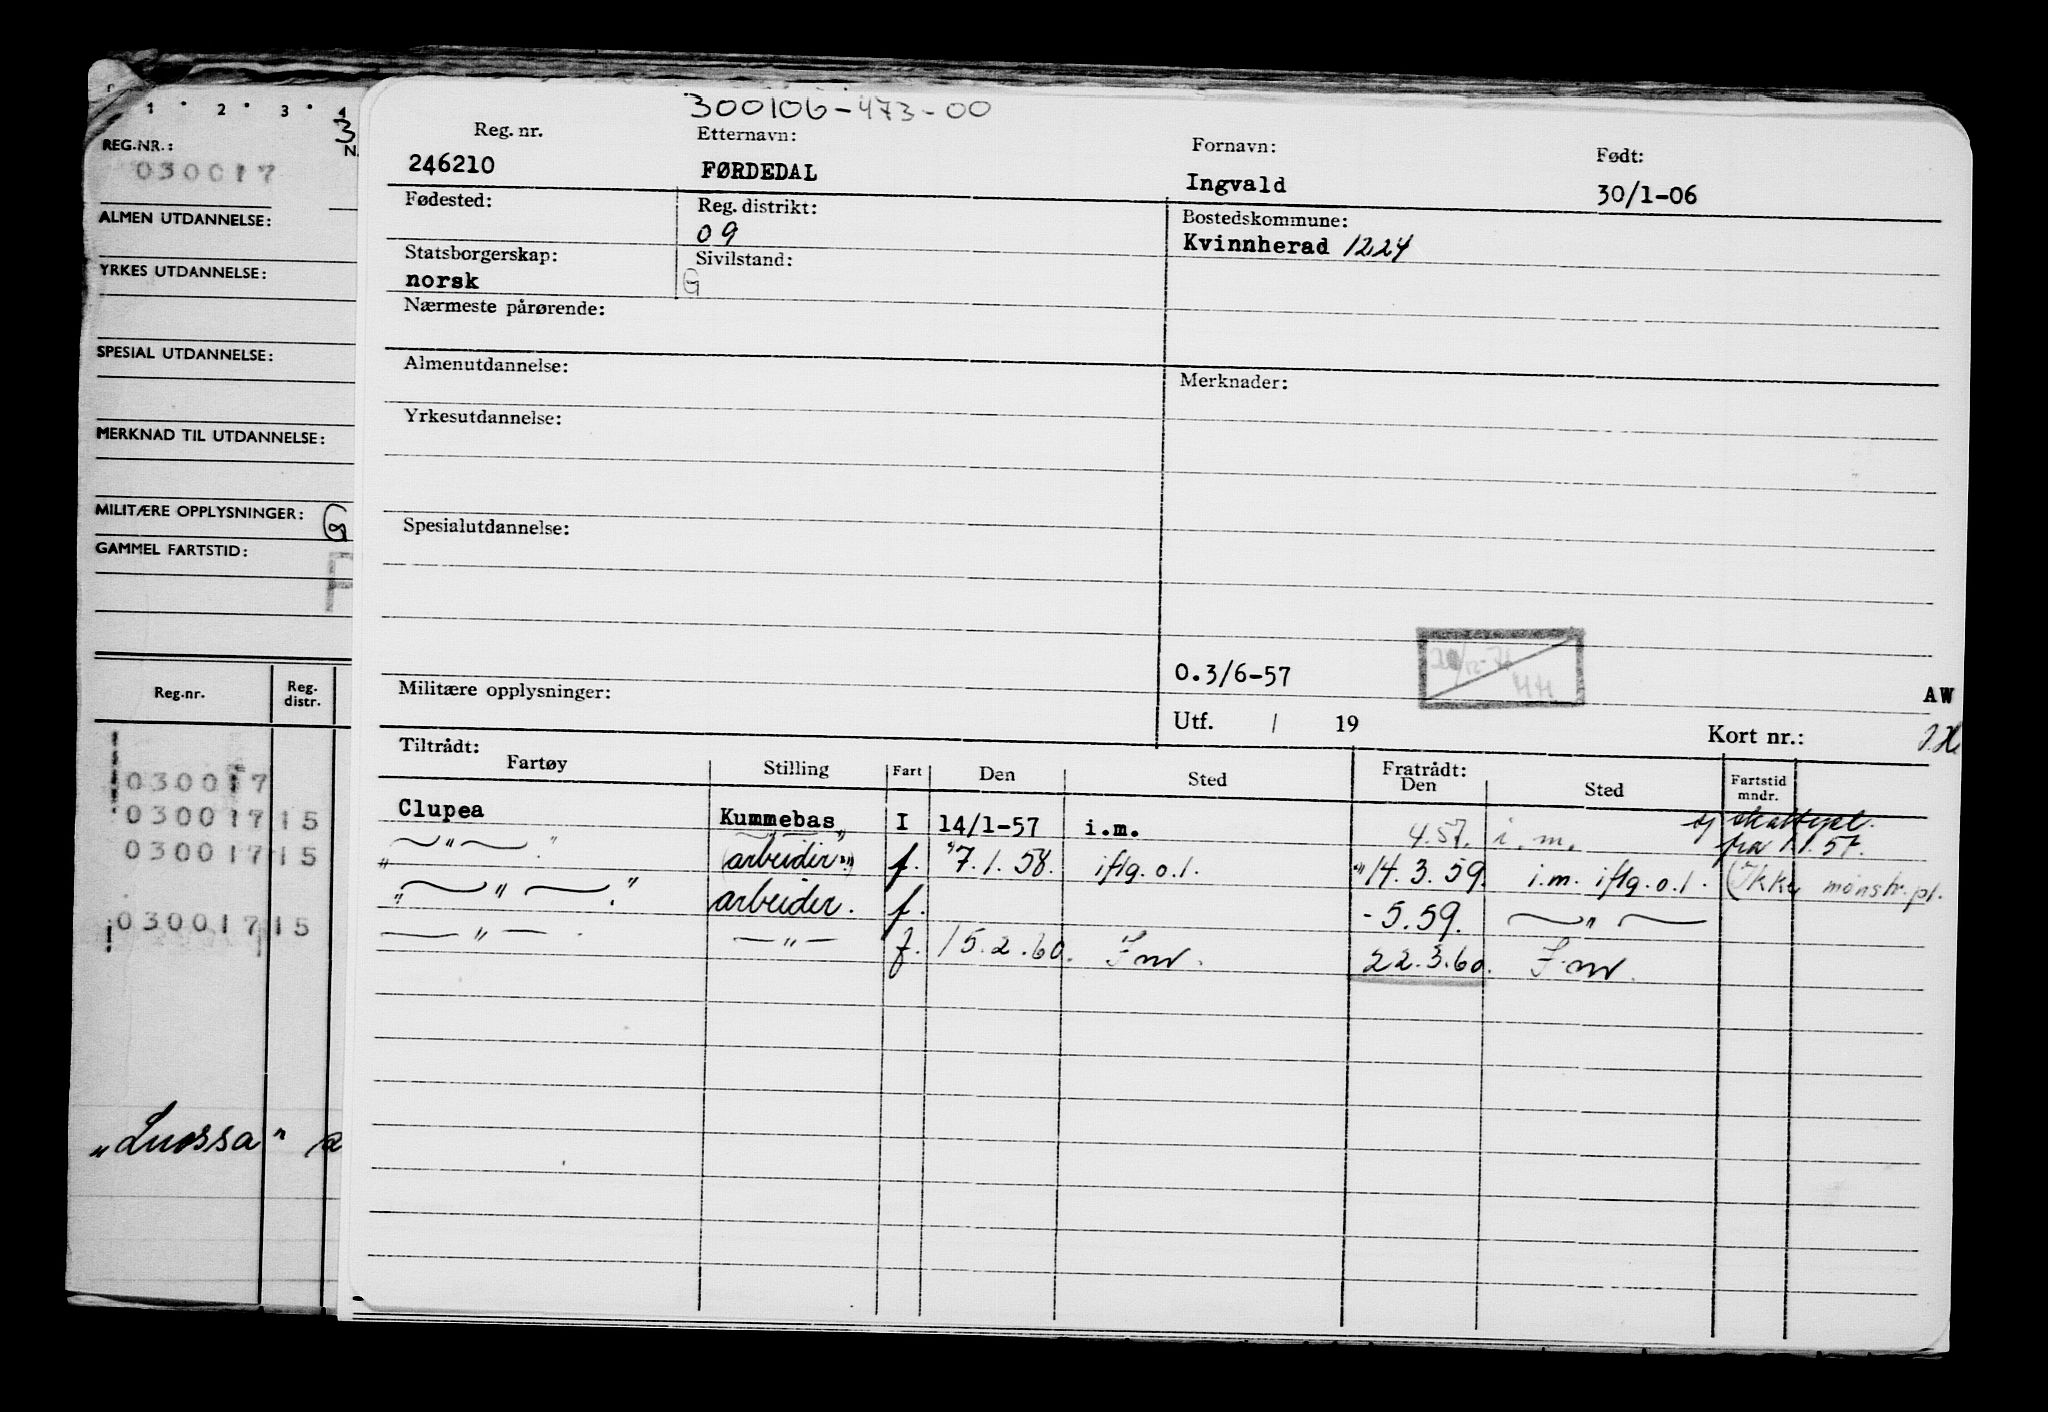 300106-473-00
Reg. nr. Etternavn: Fornavn: Født:
246210 FØRDEDAL Ingvald 30/1-06
Fødested: Reg. distrikt: Bostedskommune:
09 Kvinnherad 1224
Statsborgerskap: Sivilstand:
norsk G
Nærmeste pårørende:
Almenutdannelse: Merknader:
Yrkesutdannelse:
Spesialutdannelse:
O.3/6-57
Militære opplysninger: AW
Utf. / 19 Kort nr.:
Tiltrådt: Fratrådt:
Fartøy Stilling Fart Den Sted Den Sted Fartstid mndr.
Clupea Kummebas I 14/1-57 i.m. 4.57. i.m. fra 1.1.57.
" (arbeider.") f. "7.1.58. iflg.o.l. "14.3.59. i.m. iflg.o.l. (Ikke mønstr.pl.
" " " arbeider. f. -5.59. "
" " f. 15.2.60. 22.3.60.
1 2 3 4
3
REG.NR.: N.
030017
ALMEN UTDANNELSE:
YRKES UTDANNELSE:
SPESIAL UTDANNELSE:
MERKNAD TIL UTDANNELSE:
MILITÆRE OPPLYSNINGER: G
GAMMEL FARTSTID:
F
Reg.nr. Reg. distr.
030017
030017 15
030017 15
030017 15
"Luossa" a